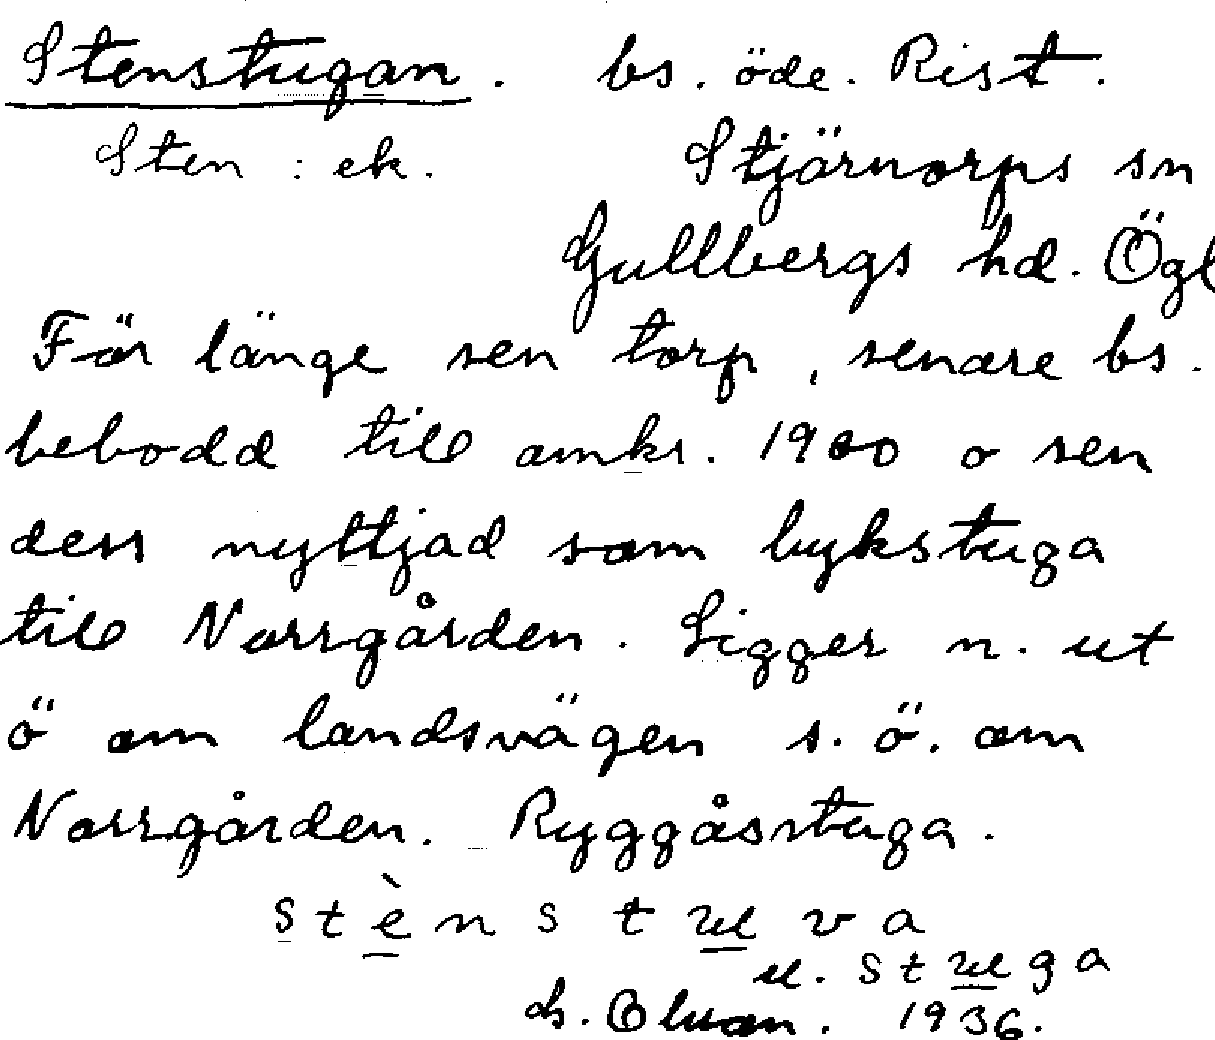 Stenstugan. bs. öde. Rist.
Sten : ek. Stjärnorps sn
Gullbergs hd. Ögl
För länge sen torp, senare bs.
bebodd till omkr. 1900 o sen
dess nyttjad som bykstuga
till Norrgården. Ligger n. ut
ö om landsvägen s. ö. om
Norrgården. Ryggåsstuga.
stènstuva
u. stuga
1936.